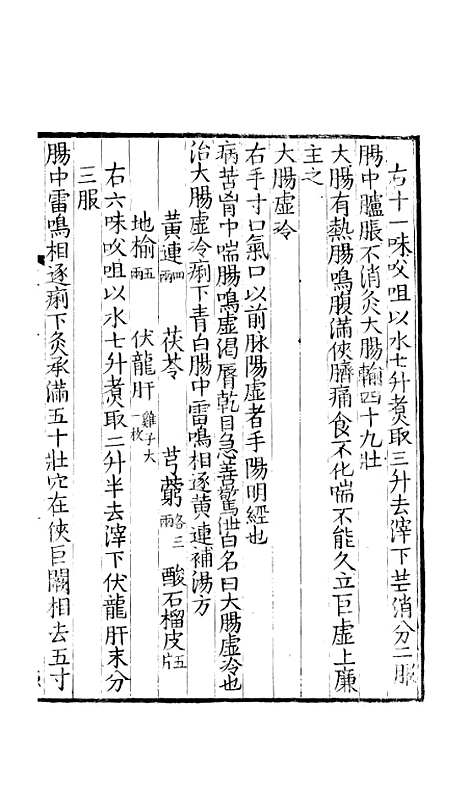 右十一味㕮咀以水七升煮取三升去滓下芒消分二服
腸中臚脹不消灸大腸輸四十九壯
大腸有熱腸鳴腹滿俠臍痛食不化喘不能久立巨虛上廉
主之
大腸虛冷
右手寸口氣口以前脉陽虛者手陽明經也
病苦胷中喘腸鳴虛渴脣乾目急善驚泄白名曰大腸虛冷也
治大腸虛冷痢下青白腸中雷鳴相逐黃連補湯方
黃連四兩 茯苓 芎藭各三兩 酸石榴皮五片
地榆五兩 伏龍肝雞子大一枚
右六味㕮咀以水七升煮取二升半去滓下伏龍肝末分
三服
腸中雷鳴相逐痢下灸承滿五十壯穴在俠巨闕相去五寸